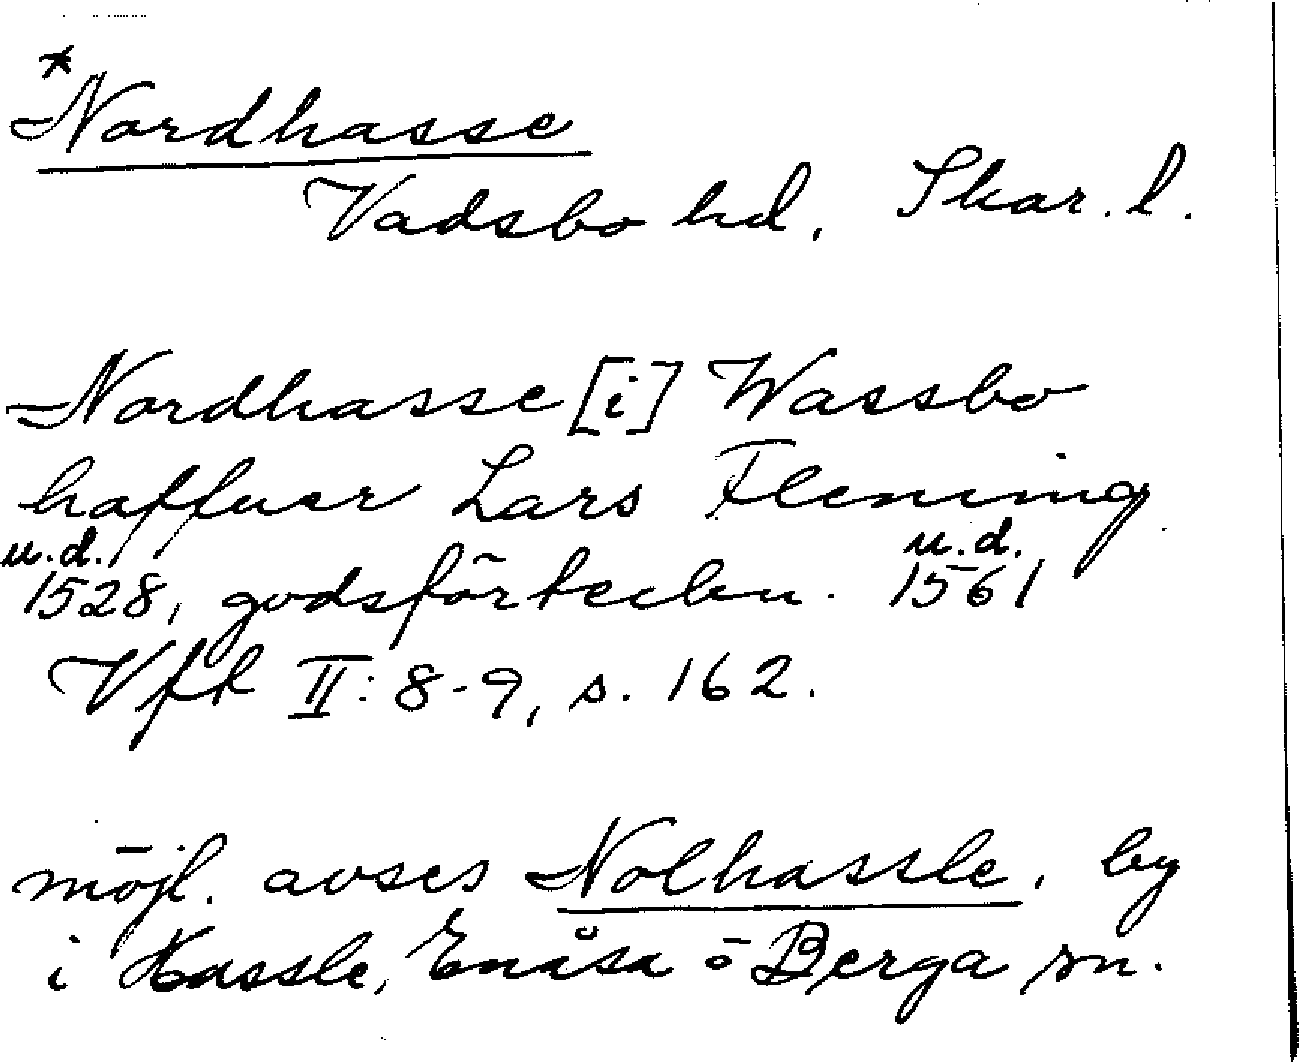 *Nordhasse
Vadsbo hd, Skar. l.
Nordhasse [i] Wassbo
haffuer Lars Fleming
u.d. u.d.
1528, godsförteckn. 1561
Vfk II: 8-9, s. 162.
möjl. avses Nolhassle, by
i Hassle, Enåsa o Berga sn.